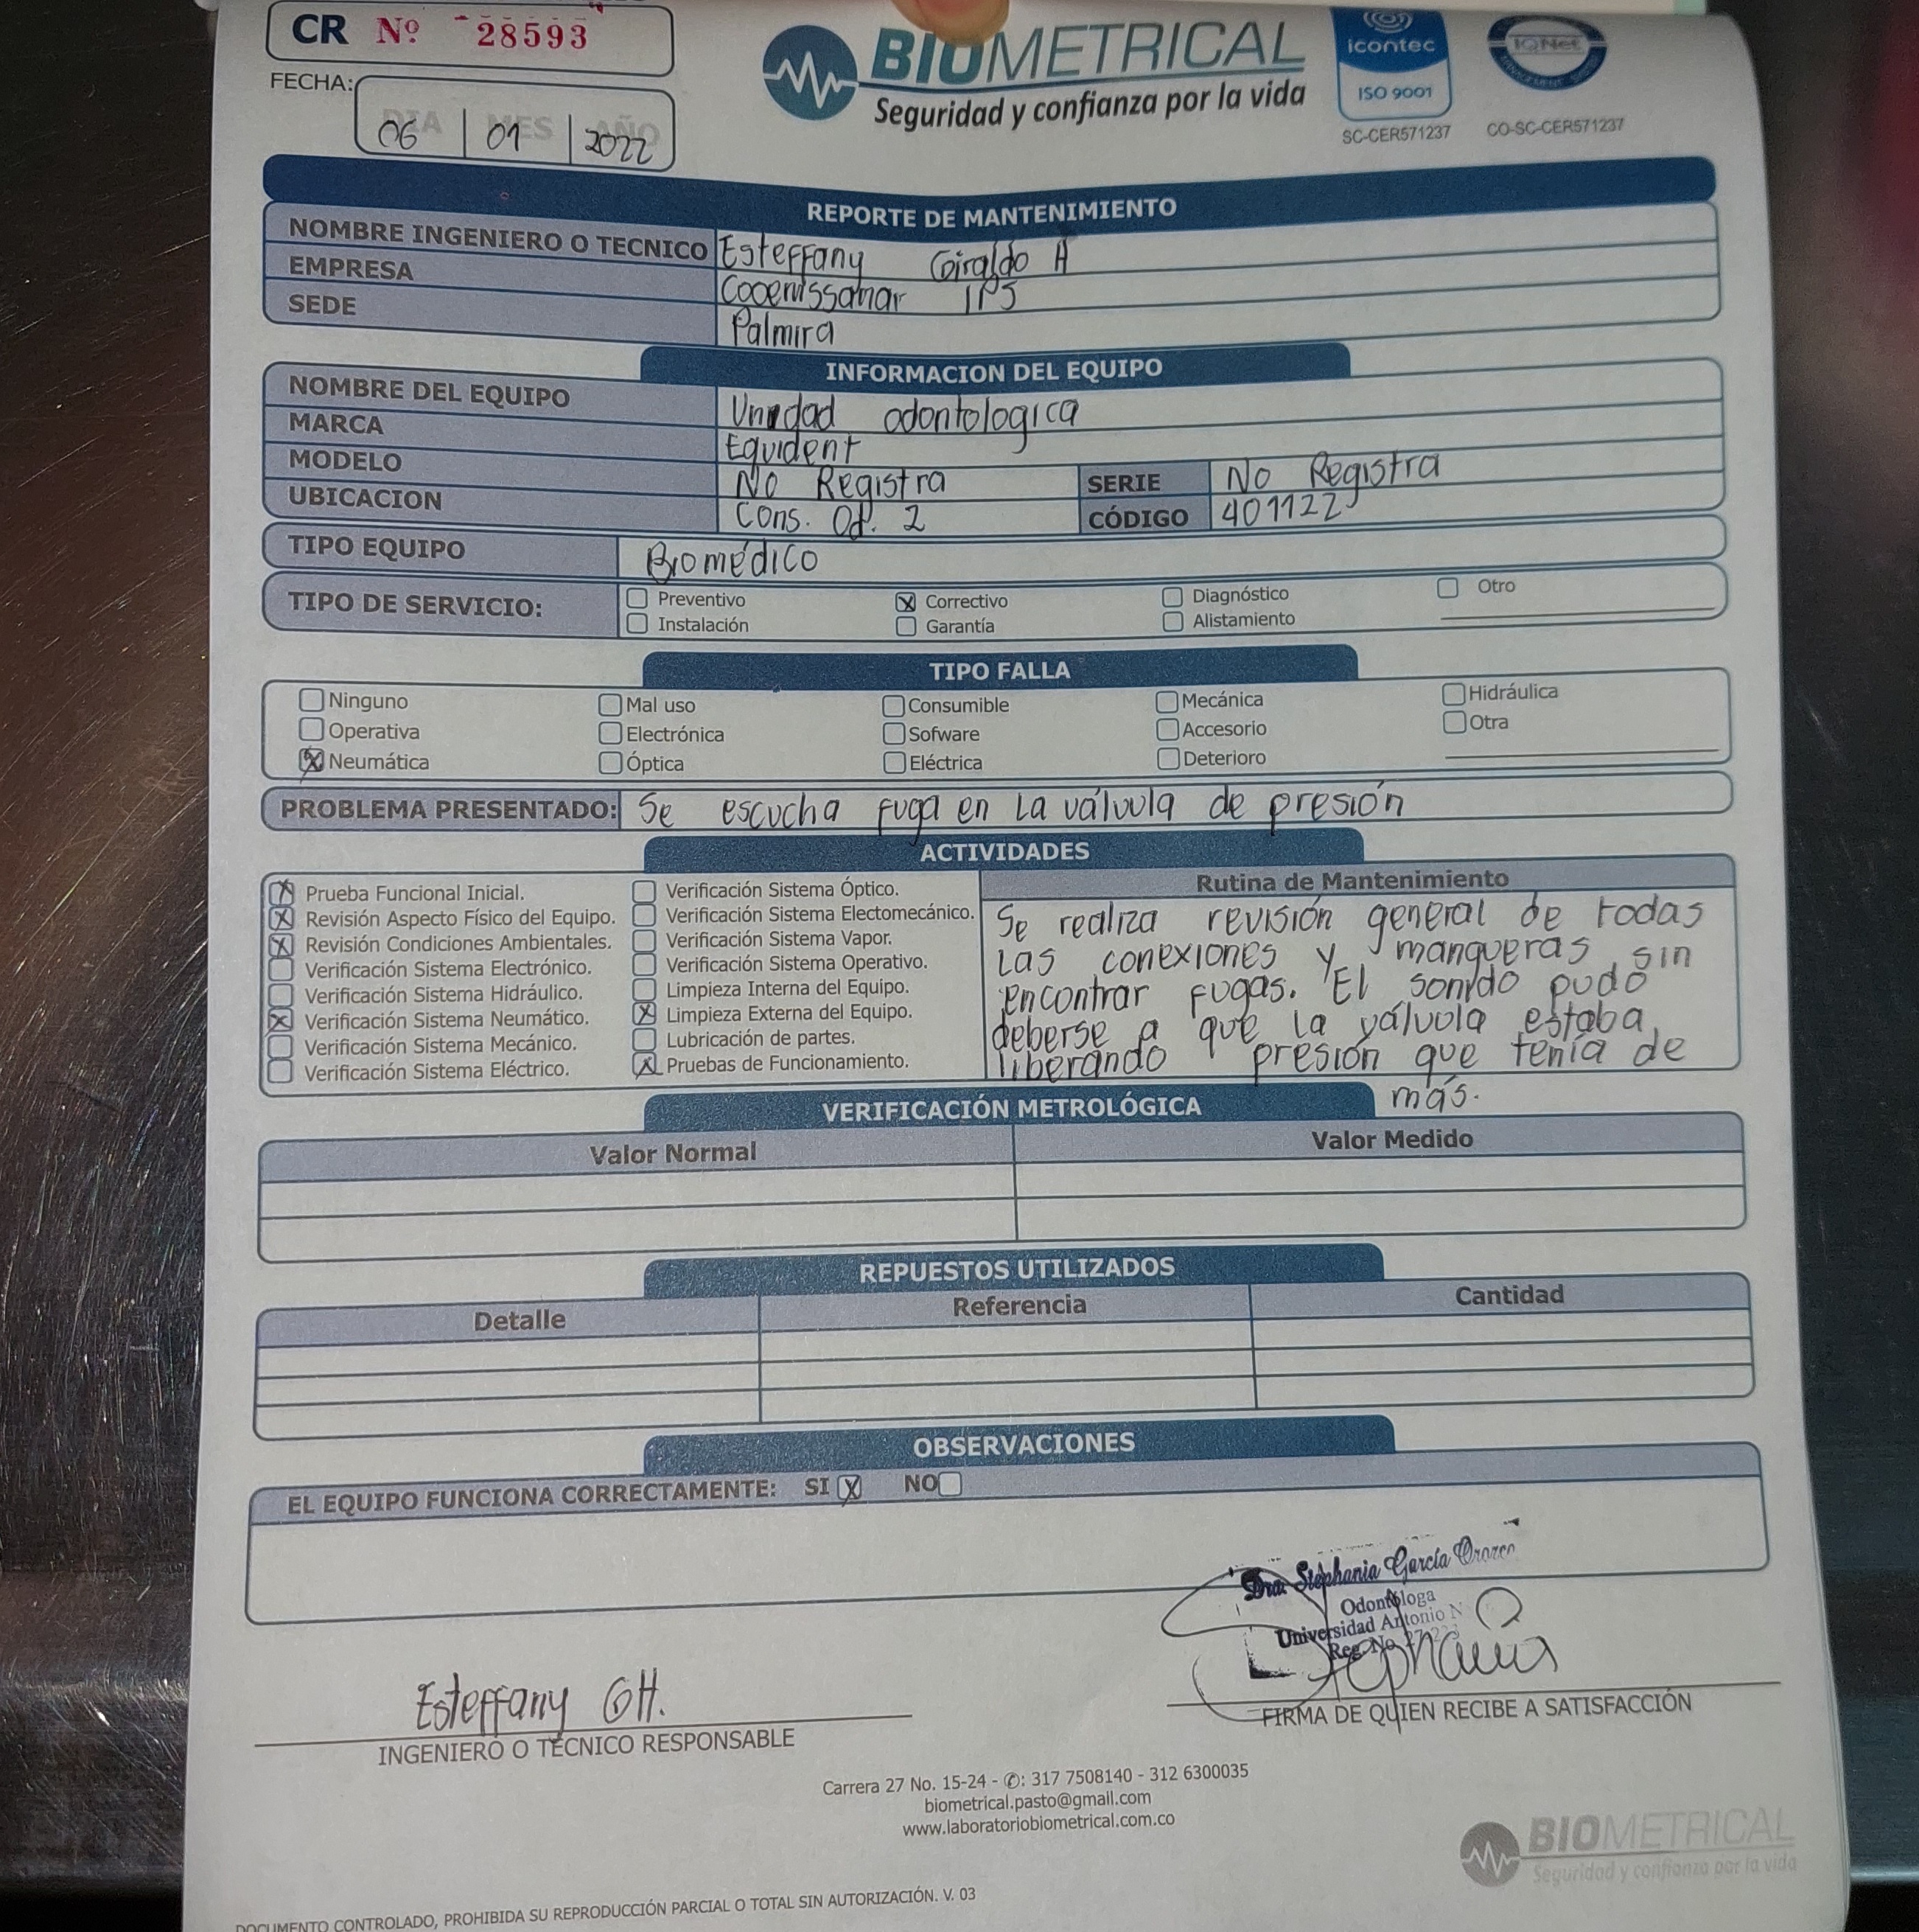 CR Nº 28593
FECHA:
DIA MES AÑO
06 01 2022
BIOMETRICAL
Seguridad y confianza por la vida
icontec
ISO 9001
SC-CER571237
IQNet
CO-SC-CER571237
REPORTE DE MANTENIMIENTO
NOMBRE INGENIERO O TECNICO Esteffany Giraldo H
EMPRESA IPS
SEDE Palmira
INFORMACION DEL EQUIPO
NOMBRE DEL EQUIPO Unidad odontologica
MARCA Equident
MODELO No Registra SERIE No Registra
UBICACION Cons. Od. 2 CÓDIGO 401122
TIPO EQUIPO Biomédico
TIPO DE SERVICIO: Preventivo Correctivo Diagnóstico Otro
Instalación Garantía Alistamiento
TIPO FALLA
Ninguno Mal uso Consumible Mecánica Hidráulica
Operativa Electrónica Sofware Accesorio Otra
Neumática Óptica Eléctrica Deterioro
PROBLEMA PRESENTADO: Se escucha fuga en La válvula de presión
ACTIVIDADES
Prueba Funcional Inicial.
Revisión Aspecto Físico del Equipo.
Revisión Condiciones Ambientales.
Verificación Sistema Electrónico.
Verificación Sistema Hidráulico.
Verificación Sistema Neumático.
Verificación Sistema Mecánico.
Verificación Sistema Eléctrico.
Verificación Sistema Óptico.
Verificación Sistema Electomecánico.
Verificación Sistema Vapor.
Verificación Sistema Operativo.
Limpieza Interna del Equipo.
Limpieza Externa del Equipo.
Lubricación de partes.
Pruebas de Funcionamiento.
Rutina de Mantenimiento
Se realiza revisión general de todas
Las conexiones y mangueras sin
encontrar fugas. El sonido pudo
deberse a que la válvula estaba
liberando presión que tenía de
más.
VERIFICACIÓN METROLÓGICA
Valor Normal Valor Medido
REPUESTOS UTILIZADOS
Detalle Referencia Cantidad
OBSERVACIONES
EL EQUIPO FUNCIONA CORRECTAMENTE: SI NO
Dra. Stephania García Orozco
Odontóloga
Universidad Antonio N
Reg. No.
Esteffany GH.
Stephania
INGENIERO O TECNICO RESPONSABLE
FIRMA DE QUIEN RECIBE A SATISFACCIÓN
Carrera 27 No. 15-24 - ✆: 317 7508140 - 312 6300035
biometrical.pasto@gmail.com
www.laboratoriobiometrical.com.co
BIOMETRICAL
Seguridad y confianza por la vida
DOCUMENTO CONTROLADO, PROHIBIDA SU REPRODUCCIÓN PARCIAL O TOTAL SIN AUTORIZACIÓN. V. 03